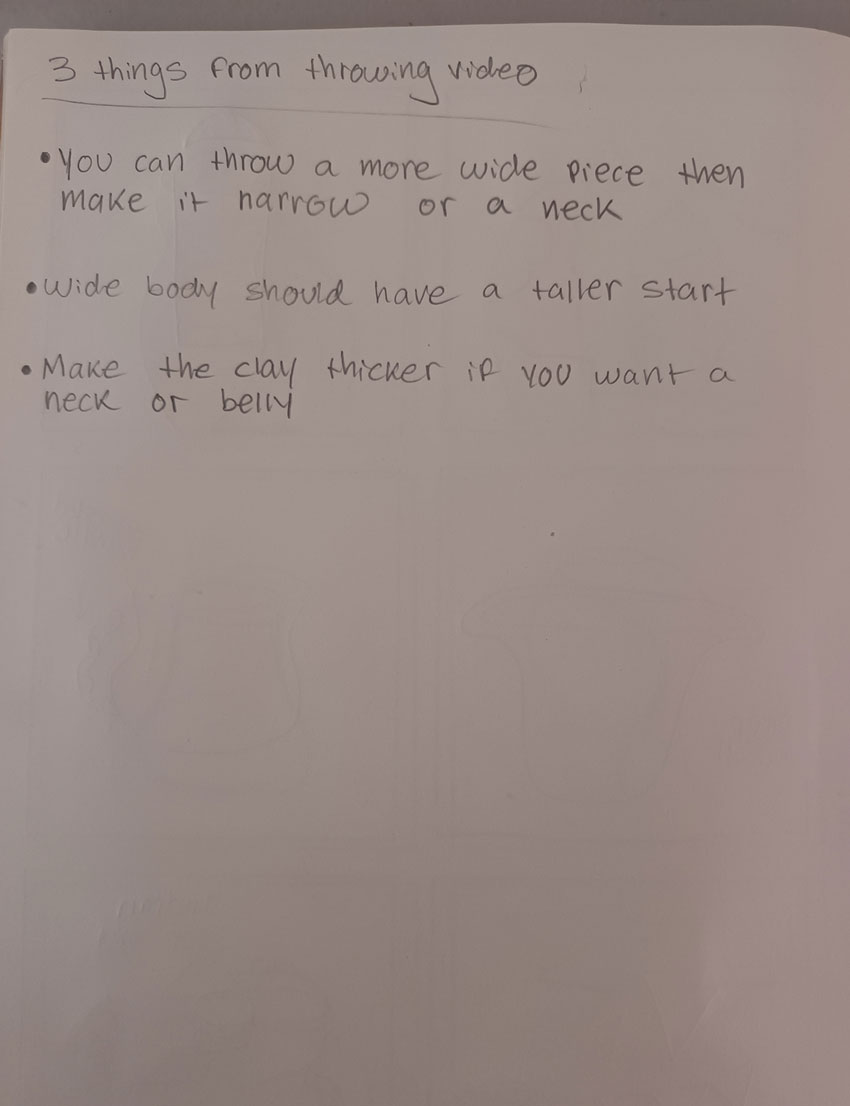 3 things from throwing video
• You can throw a more wide piece then
make it narrow or a neck
• Wide body should have a taller start
• Make the clay thicker if you want a
neck or belly